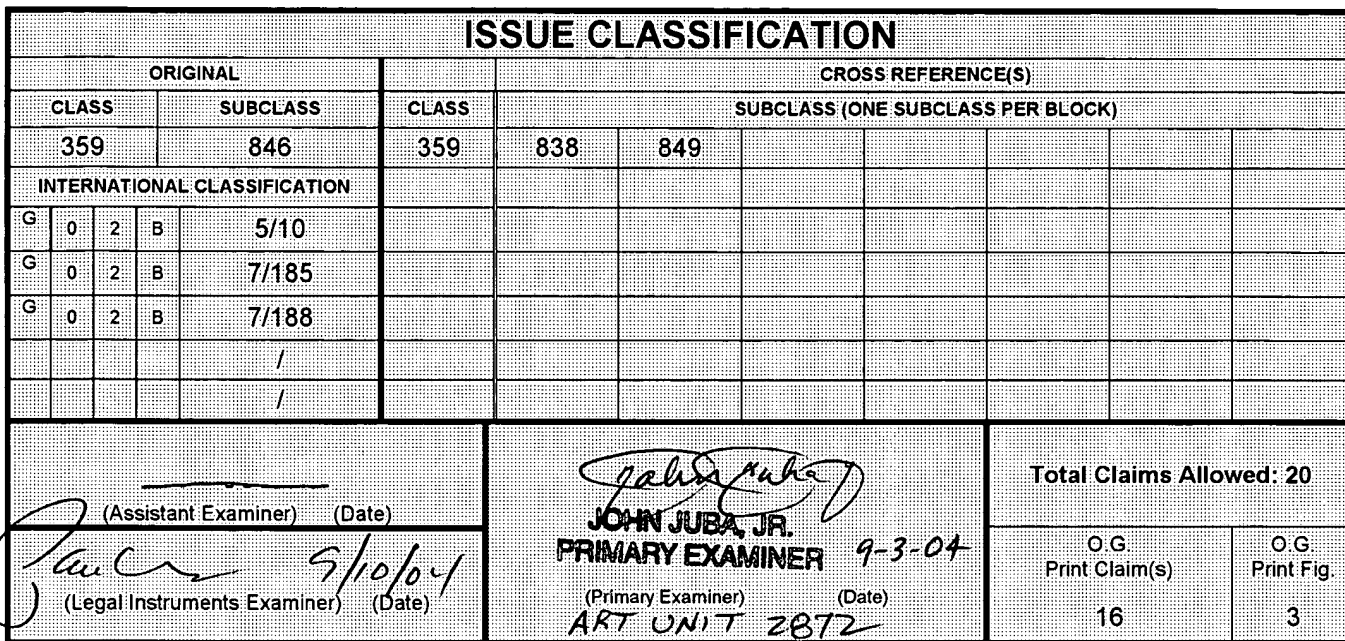 ISSUE CLASSIFICATION
ORIGINAL CROSS REFERENCE(S)
CLASS SUBCLASS CLASS SUBCLASS (ONE SUBCLASS PER BLOCK)
359 846 359 838 849
INTERNATIONAL CLASSIFICATION
G 0 2 B 5/10
G 0 2 B 7/185
G 0 2 B 7/188
/
/
(Assistant Examiner) (Date)
9/10/04
(Legal Instruments Examiner) (Date)
John Juba Jr
JOHN JUBA, JR.
PRIMARY EXAMINER 9-3-04
(Primary Examiner) (Date)
ART UNIT 2872
Total Claims Allowed: 20
O.G. Print Claim(s)
16
O.G. Print Fig.
3